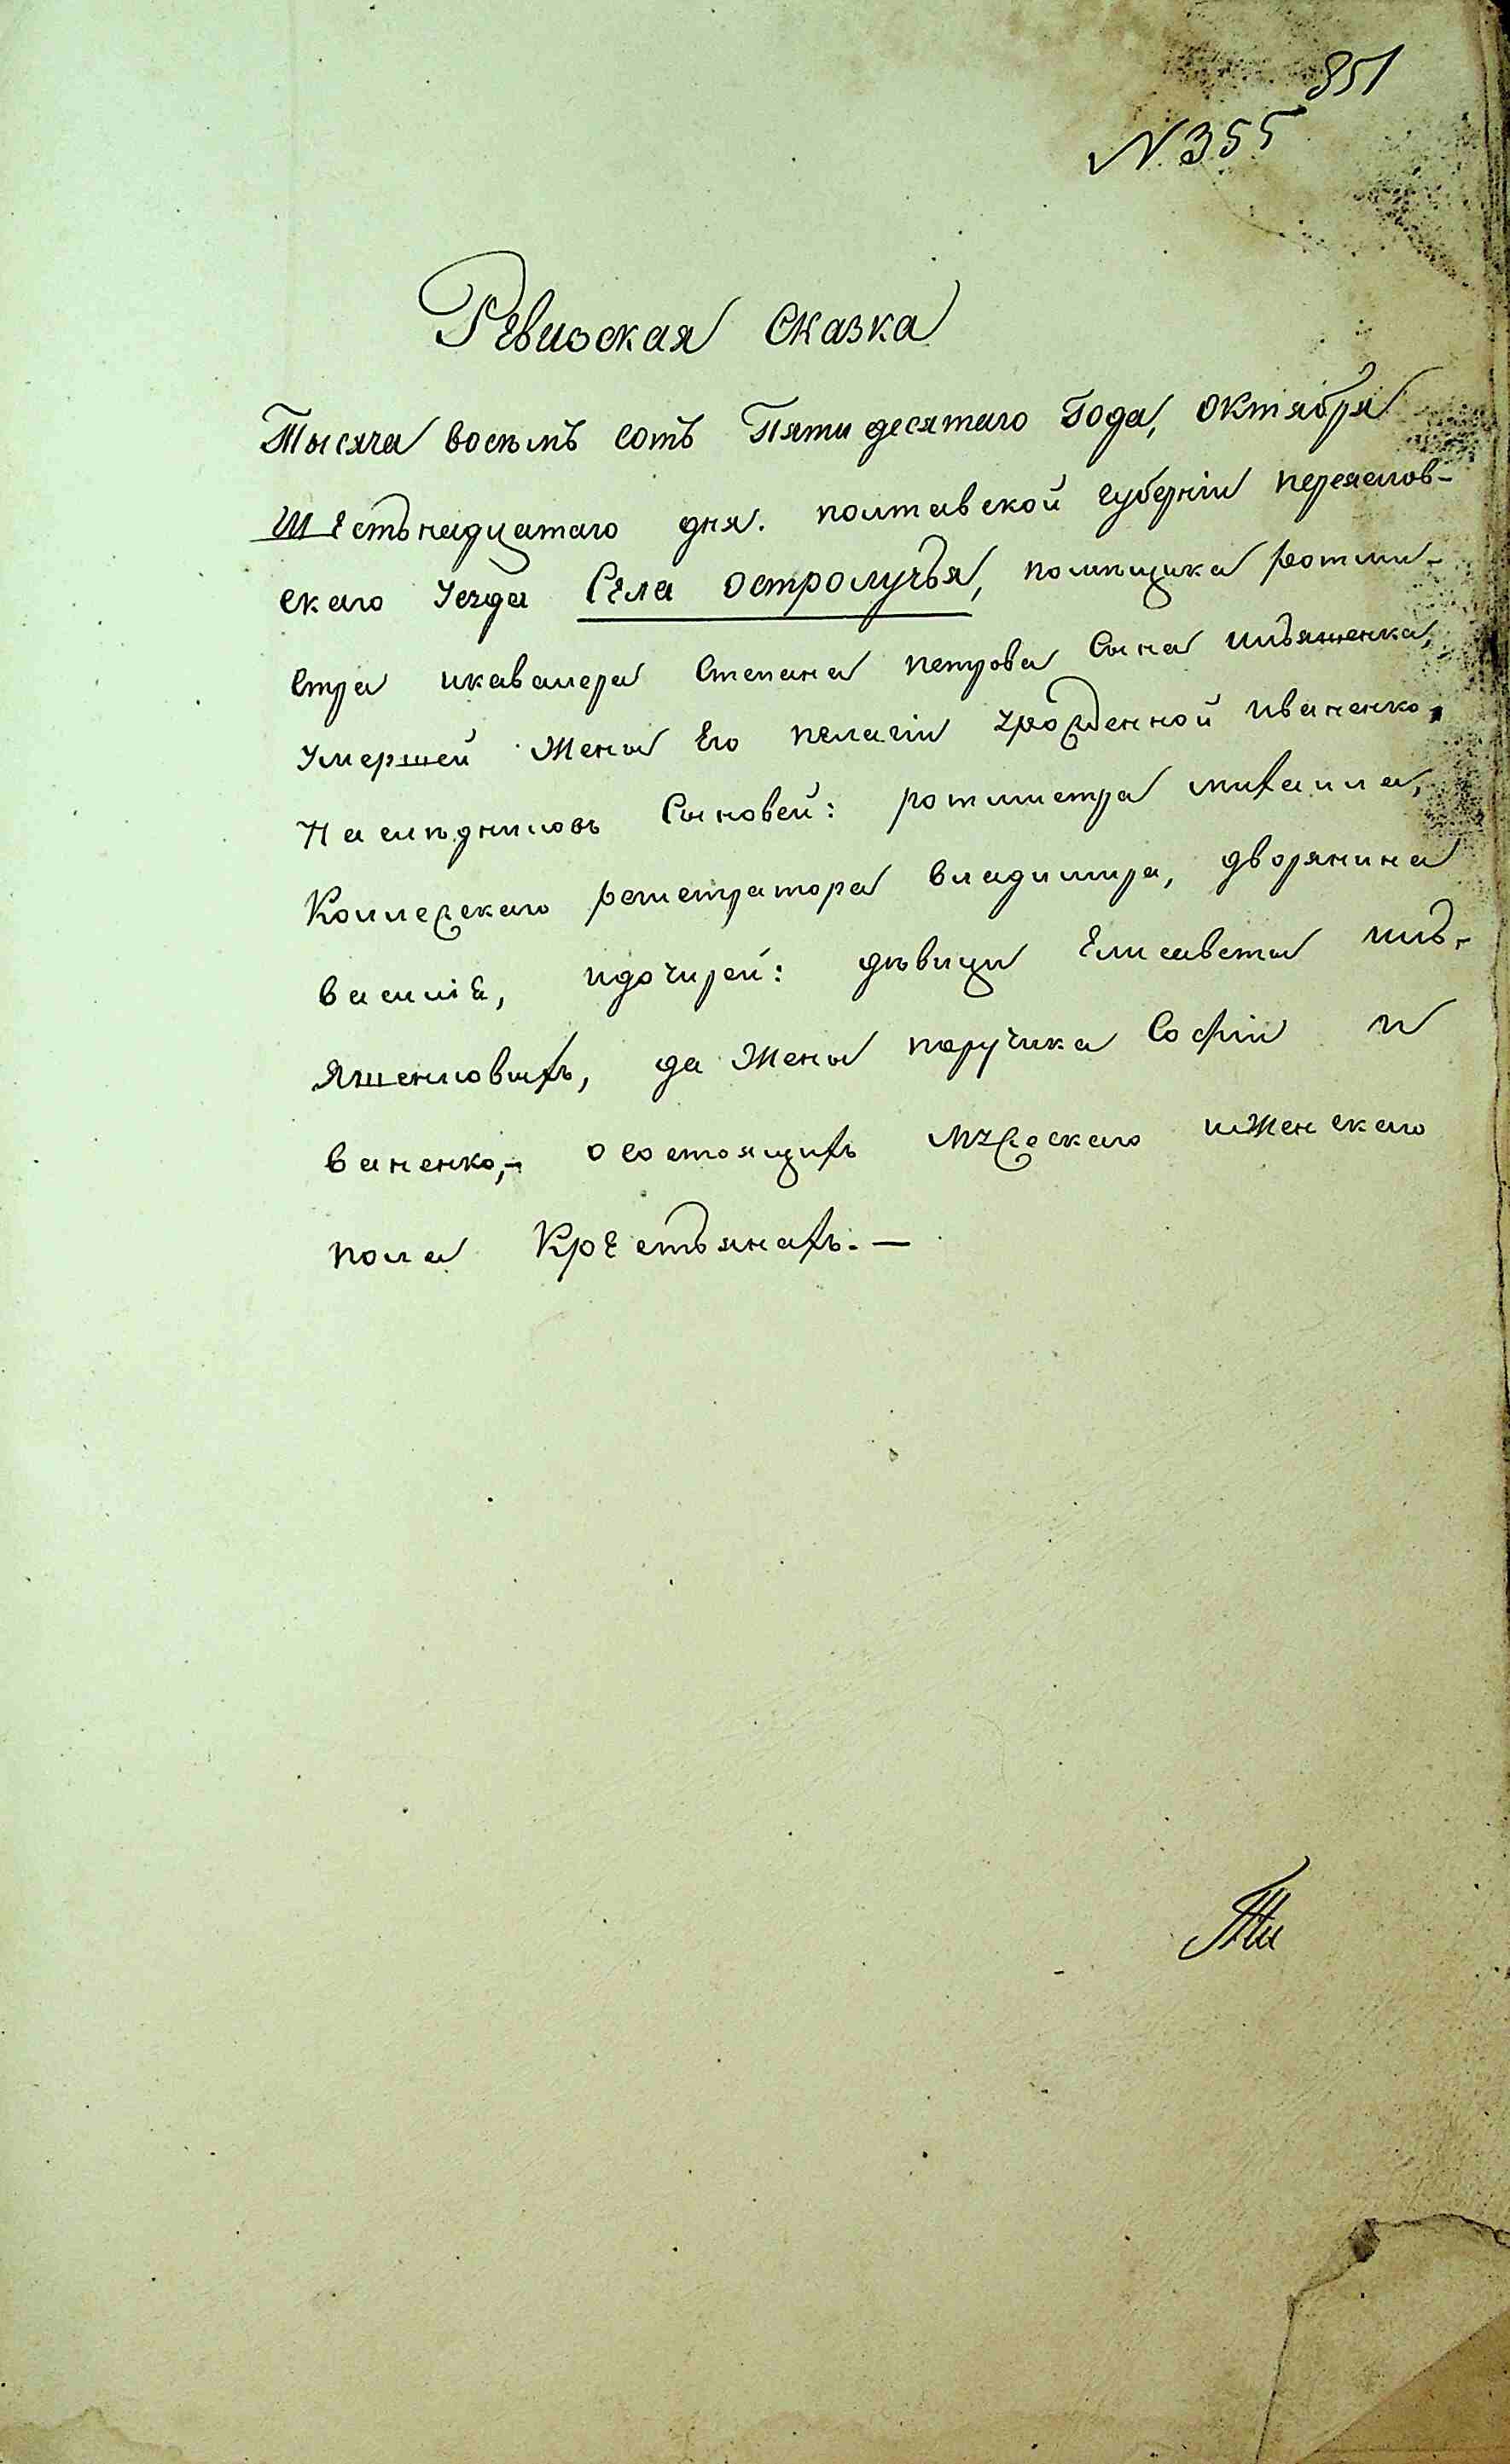 851
N 355
Ревизская Сказка
Тысяча восемь сотъ Пяти десятаго Года, Октября
Шестьнадцатаго дня. полтавской губерніи переяслов-
скаго Уезда Села Остролучья, помѣщика ротми-
стра икавалера Степана петрова Сына ильяшенка,
Умершей Жены Его пелагіи урожденной иваненко,
Наслѣдниковъ Сыновей: ротмистра михаила,
Коллежскаго регистратора владимира, дворянина
василія, идочирей: дѣвицы Елисаветы иль-
яшенковыхъ, да Жены поручика Софіи И
ваненко,- о состоящихъ мужескаго иЖенскаго
пола Крестьянахъ. —